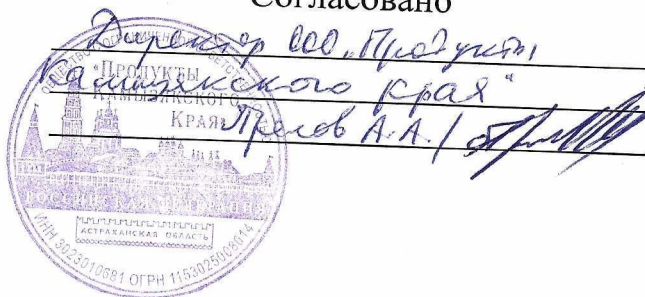 Согласовано
Директор ООО „Продукты
Камызякского края"
А.А. /
ОБЩЕСТВО С ОГРАНИЧЕННОЙ ОТВЕТСТВЕННОСТЬЮ
«ПРОДУКТЫ
КАМЫЗЯКСКОГО
КРАЯ»
РОССИЙСКАЯ ФЕДЕРАЦИЯ
АСТРАХАНСКАЯ ОБЛАСТЬ
ИНН 3023010681 ОГРН 1153025008014